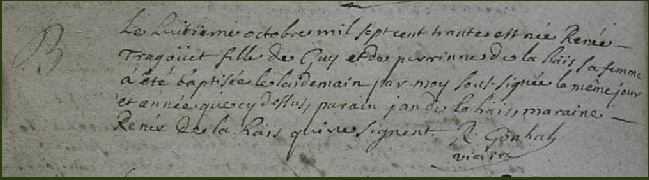 B
Le huitieme octobre mil sept cent trante est née Renée
Tragoüet fille de Guy et de perrinne de la hais sa femme
a été baptisée le landemain par moy sous signée le meme jour
et année que cy dessus, parain jan de la hais, maraine
Renée de la hais qui ne signent R
vicaire